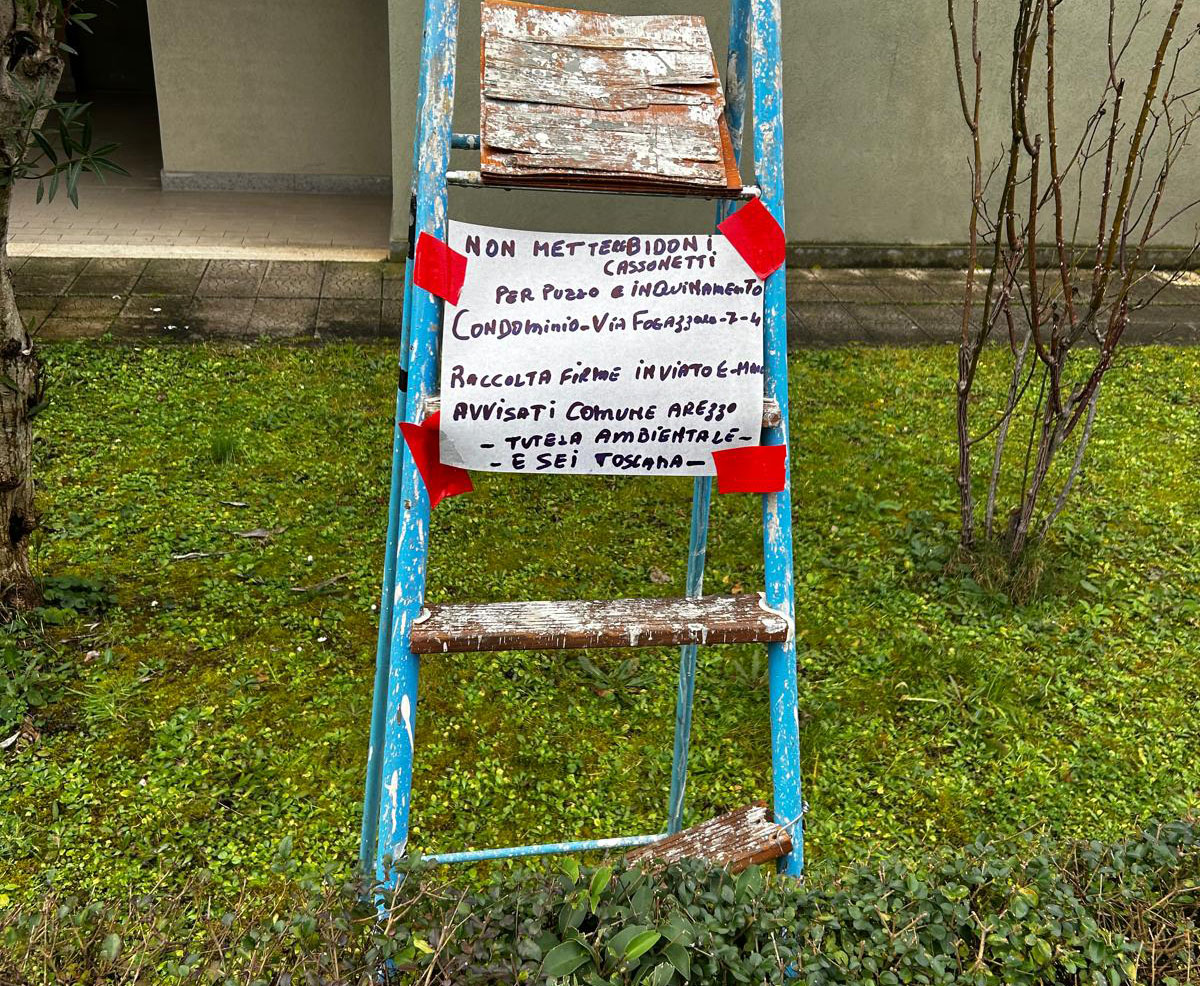 NON METTERE BIDONI
CASSONETTI
PER PUZZO E INQUINAMENTO
CONDOMINIO-VIA FOGAZZARO-2-4
RACCOLTA FIRME INVIATO E-MAIL
AVVISATI COMUNE AREZZO
- TUTELA AMBIENTALE-
- E SEI TOSCANA-